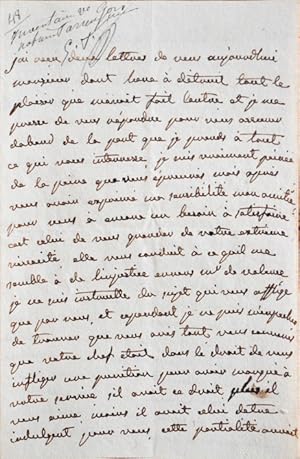 48
j'ai reçu deux lettres de vous aujourdhui
monsieur dont l'une à détruit tout le
plaisir que m'avoit fait l'autre et je me
presse de vous répondre pour vous assurer
dabord de la part que je prends à tout
ce qui vous intéresse, je suis vraiment peinée
de la peine que vous éprouvés mais après
vous avoir exprimé ma sensibilité mon amitié
pour vous à encore un besoin à satisfaire
cest celui de vous gronder de votre extrème
vivacité elle vous conduit à ce qu'il me
semble à de l'injustice envers mr de
je ne suis du sujet qui vous afflige
que par vous, et cependant je ne puis m'empecher
de trouver que vous avés tout
que votre chef étoit dans le droit de vous
infliger une punition pour avoir manqué à
votre service s'il avoit ce droit, plus il
vous aime moins il avoit celui detre
indulgent pour vous, cette partialité auroit